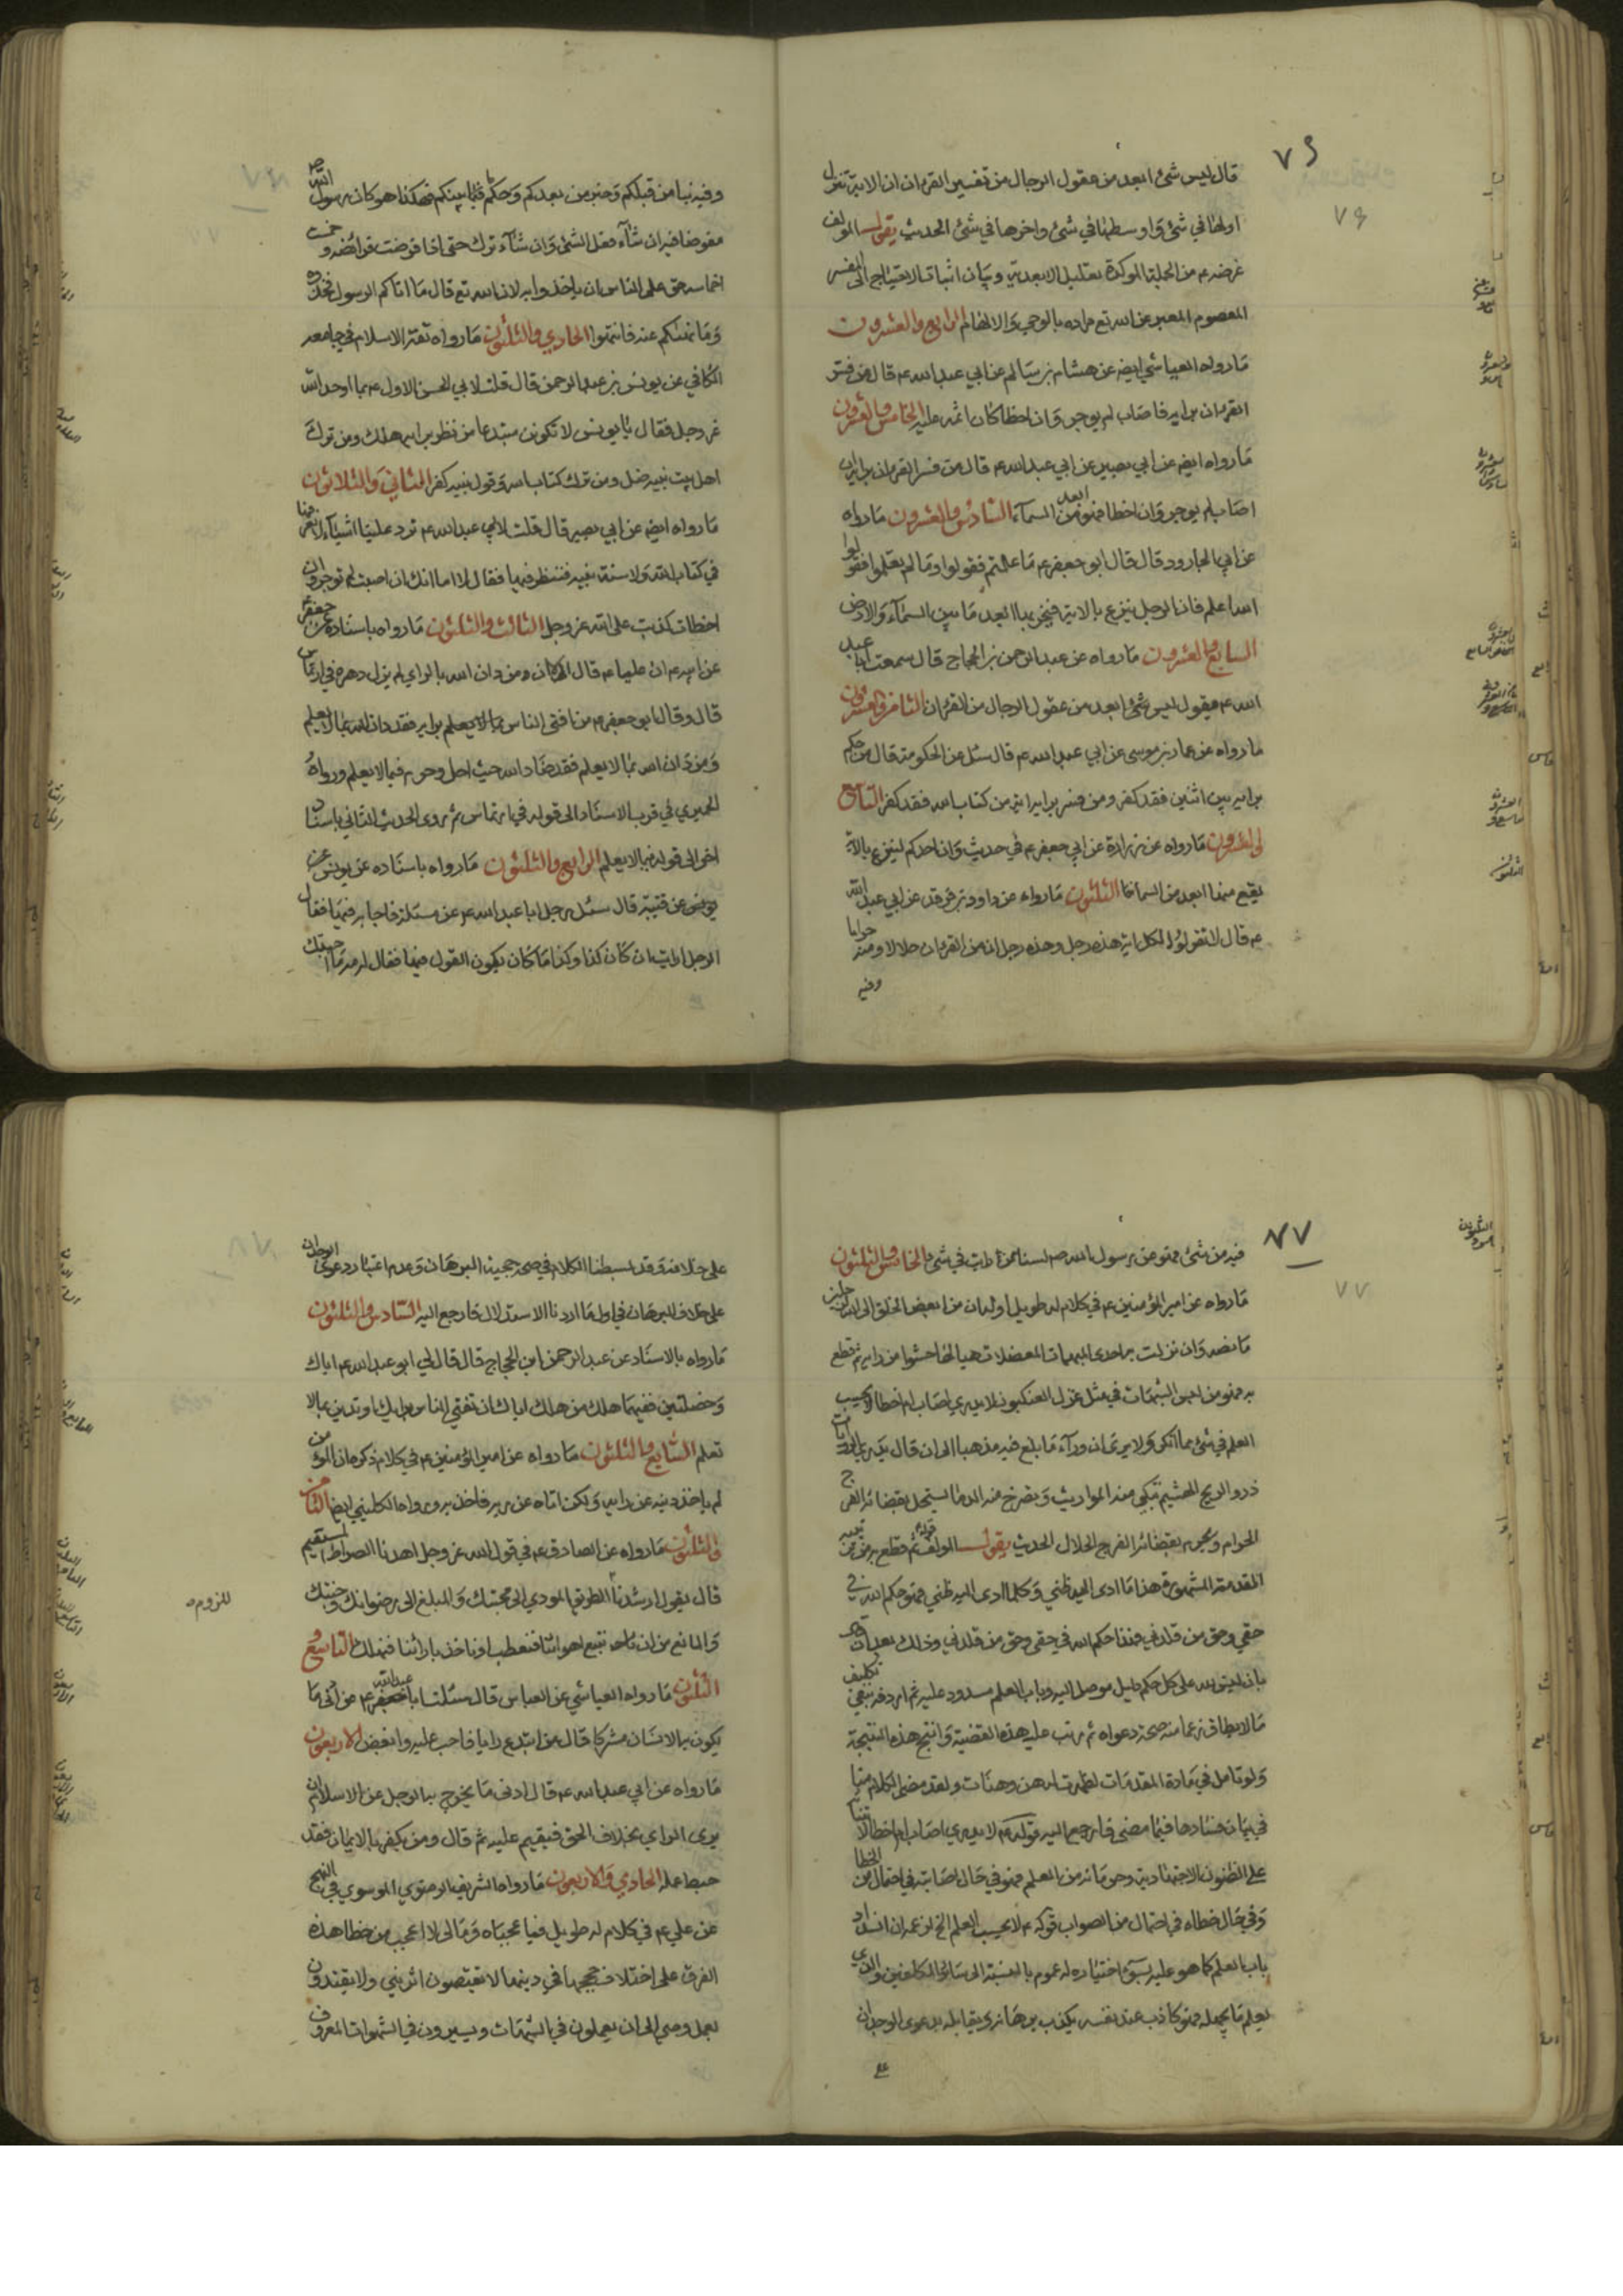 ٧٦
قال ليس شئ ابعد من عقول الرجال من تفسير القرءان ان الاية تنزل
اولها في شئ واوسطها في شئ واخرها في شئ الحديث يقول المولف
غرضه ع من الجملة الموكدة بتعليل الابعدية وبيان اثبات الاحتياج الى المفسر
المعصوم المعبر عن الله تع مراده بالوحي والالهام الرابع والعشرون
ما رواه العياشي ايضه عن هشام بن سالم عن ابي عبد الله ع قال من فسر
القرءان برايه فاصاب لم يوجر وان اخطا كان اثمه عليه الخامس والعشرون
ما رواه ايضه عن ابي بصير عن ابي عبد الله ع قال من فسر القرءان برايه ان
اصاب لم يوجر وان اخطا فهو ابعد من السماء السادس والعشرون ما رواه
عن ابي الجارود قال قال ابو جعفر ع ما علمتم فقولوا وما لم تعلموا فقولوا
الله اعلم فان الرجل ينزع بالاية فيخر بها ابعد ما بين السماء والارض
السابع والعشرون ما رواه عن عبد الرحمن بن الحجاج قال سمعت ابا عبد
الله ع يقول ليس شئ ابعد من عقول الرجال من القرءان الثامن والعشرون
ما رواه عن عمار بن موسى عن ابي عبد الله ع قال سئل عن الحكومة قال من حكم
برايه بين اثنين فقد كفر ومن فسر براية اية من كتاب الله فقد كفر التاسع
والعشرون ما رواه عن زرارة عن ابي جعفر ع في حديث وان احدكم لينزع بالاية
يقع منها ابعد من السما الثلثون ما رواه عن داود بن فرقد عن ابي عبد الله
ع قال لا تقولوا لكل اية هذه رجل وهذه رجل ان من القرءان حلالا ومنه حراما
وفيه
وفيه نبا من قبلكم وخبر من بعدكم وحكم ما بينكم فهكذا هو كان رسول الله ص
مفوضا فيه ان شاء فعل الشئ وان شاء ترك حتى اذا فرضت فرائضه وخمست
اخماسه حق على الناس ان ياخذوا به لان الله تع قال ما اتاكم الرسول فخذوه
وما نهيكم عنه فانتهوا الحادي والثلثون ما رواه ثقة الاسلام في جامعه
الكافي عن يونس بن عبد الرحمن قال قلت لابي الحسن الاول ع بما اوحد الله
عز وجل فقال يا يونس لا تكونن مبتدعا من نظر برايه هلك ومن ترك
اهل بيت نبيه ضل ومن ترك كتاب الله وقول نبيه كفر الثاني والثلاثون
ما رواه ايضه عن ابي بصير قال قلت لابي عبد الله ع ترد علينا اشياء لا نعرفها
في كتاب الله ولا سنة نبيه فننظر فيها فقال لا اما انك ان اصبت لم توجر وان
اخطات كذبت على الله عز وجل الثالث والثلثون ما رواه باسناده عن جعفر
عن ابيه ع ان عليا ع قال ومن دان الله بالراي لم يزل دهره في ارتماس
قال وقال ابو جعفر ع من افتى الناس برايه فقد دان الله بما لا يعلم
ومن دان الله بما لا يعلم فقد ضاد الله حيث احل وحرم فيما لا يعلم ورواه
الحميري في قرب الاسناد الى قوله في ارتماس ثم روى الحديث الثاني باسناد
اخر الى قوله فيما لا يعلم الرابع والثلثون ما رواه باسناده عن يونس عن
عن قتيبة قال سئل رجل ابا عبد الله ع عن مسئلة فاجابه فيها فقال
الرجل ارايت ان كان كذا وكذا ما كان يكون القول فيها فقال له مه ما اجبتك
٧٧
فيه من شئ فهو عن رسول الله ص لسنا من ارايت في شئ الخامس والثلثون
ما رواه عن امير المؤمنين ع في كلام له طويل اوله ان من ابغض الخلق الى الله رجلين
ما نصه وان نزلت به احدى المبهمات المعضلات هيا لها حشوا من رايه ثم قطع
به فهو من لبس الشبهات في مثل غزل العنكبوت لا يدري اصاب ام اخطا لا يحسب
العلم في شئ مما انكر ولا يرى ان وراء ما بلغ فيه مذهبا الى ان قال يذري الروايات
ذرو الريح الهشيم تبكي منه المواريث وتصرخ منه الدما يستحل بقضائه الفرج
الحرام ويحرم بقضائه الفرج الحلال الحديث يقول المولف قوله ع ثم قطع به
المقدمة المشهورة هذا ما ادى اليه ظني وكلما ادى اليه ظني فهو حكم الله في
حقي وحق من قلدني فهذا حكم الله في حقي وحق من قلدني وذلك بعد
بان ليس لله على كل حكم دليل موصل اليه وباب العلم مسدود عليه ثم اردفه بنفي تكليف
ما لا يطاق زعما منه صحة دعواه ثم رتب عليه هذه القضية وانتج هذه النتيجة
ولو تامل في مادة المقدمات لظهرت له هن وهنات ولقد مضى الكلام منا
في بيان فسادها فيما مضى فارجع اليه قوله ع لا يدري اصاب ام اخطا
على الظنون الاجتهادية وحرمانه من العلم فهو في حال اصابته في احتمال من الخطا
وفي حال خطائه في احتمال من الصواب قوله ع لا يحسب العلم الخ لزعمه ان انسداد
باب العلم كما هو عليه بسوء اختياره له عموم بالنسبة الى سائر المكلفين والذي
يعلم ما يجهله فهو كاذب عند نفسه يكذب برهانه ويقابله بدعوى الوجدان
على
على خلافه وقد بسطنا الكلام في صحة حجية البرهان وعدم اعتبار دعوى الوجدان
على خلاف البرهان في اول ما اردنا الاستدلال فارجع اليه السادس والثلثون
ما رواه بالاسناد عن عبد الرحمن ابن الحجاج قال قال لي ابو عبد الله ع اياك
وخصلتين ففيهما هلك من هلك اياك ان تفتي الناس برايك او تدين بما لا
تعلم السابع والثلثون ما رواه عن امير المؤمنين ع في كلام ذكره ان المؤمن
لم ياخذ دينه عن رايه ولكن اتاه عن ربه فاخذ به ورواه الكليني ايضا الثامن
والثلثون ما رواه عن الصادق ع في قول الله عز وجل اهدنا الصراط المستقيم
قال يقول ارشدنا للطريق المودي الى محبتك والمبلغ الى رضوانك وجنتك
للزوم
والمانع من ان نتبع اهوائنا فنعطب او ناخذ بارائنا فنهلك التاسع و
الثلثون ما رواه العياشي عن ابي العباس قال سئلت ابا عبد الله ع عن ادنى ما
يكون به الانسان مشركا قال من ابتدع رايا فاحب عليه وابغض الاربعون
ما رواه عن ابي عبد الله ع قال ادنى ما يخرج به الرجل عن الاسلام ان
يرى الراي بخلاف الحق فيقيم عليه ثم قال ومن يكفر بالايمان فقد
حبط عمله الحادي والاربعون ما رواه الشريف الرضوي الموسوي في النهج
عن علي ع في كلام له طويل فيا عجباه وما لي لا اعجب من خطا هذه
الفرق على اختلاف حججها في دينها لا يقتصون اثر نبي ولا يقتدون
بعمل وصي الى ان يعملون في الشبهات ويسيرون في الشهوات المعروف